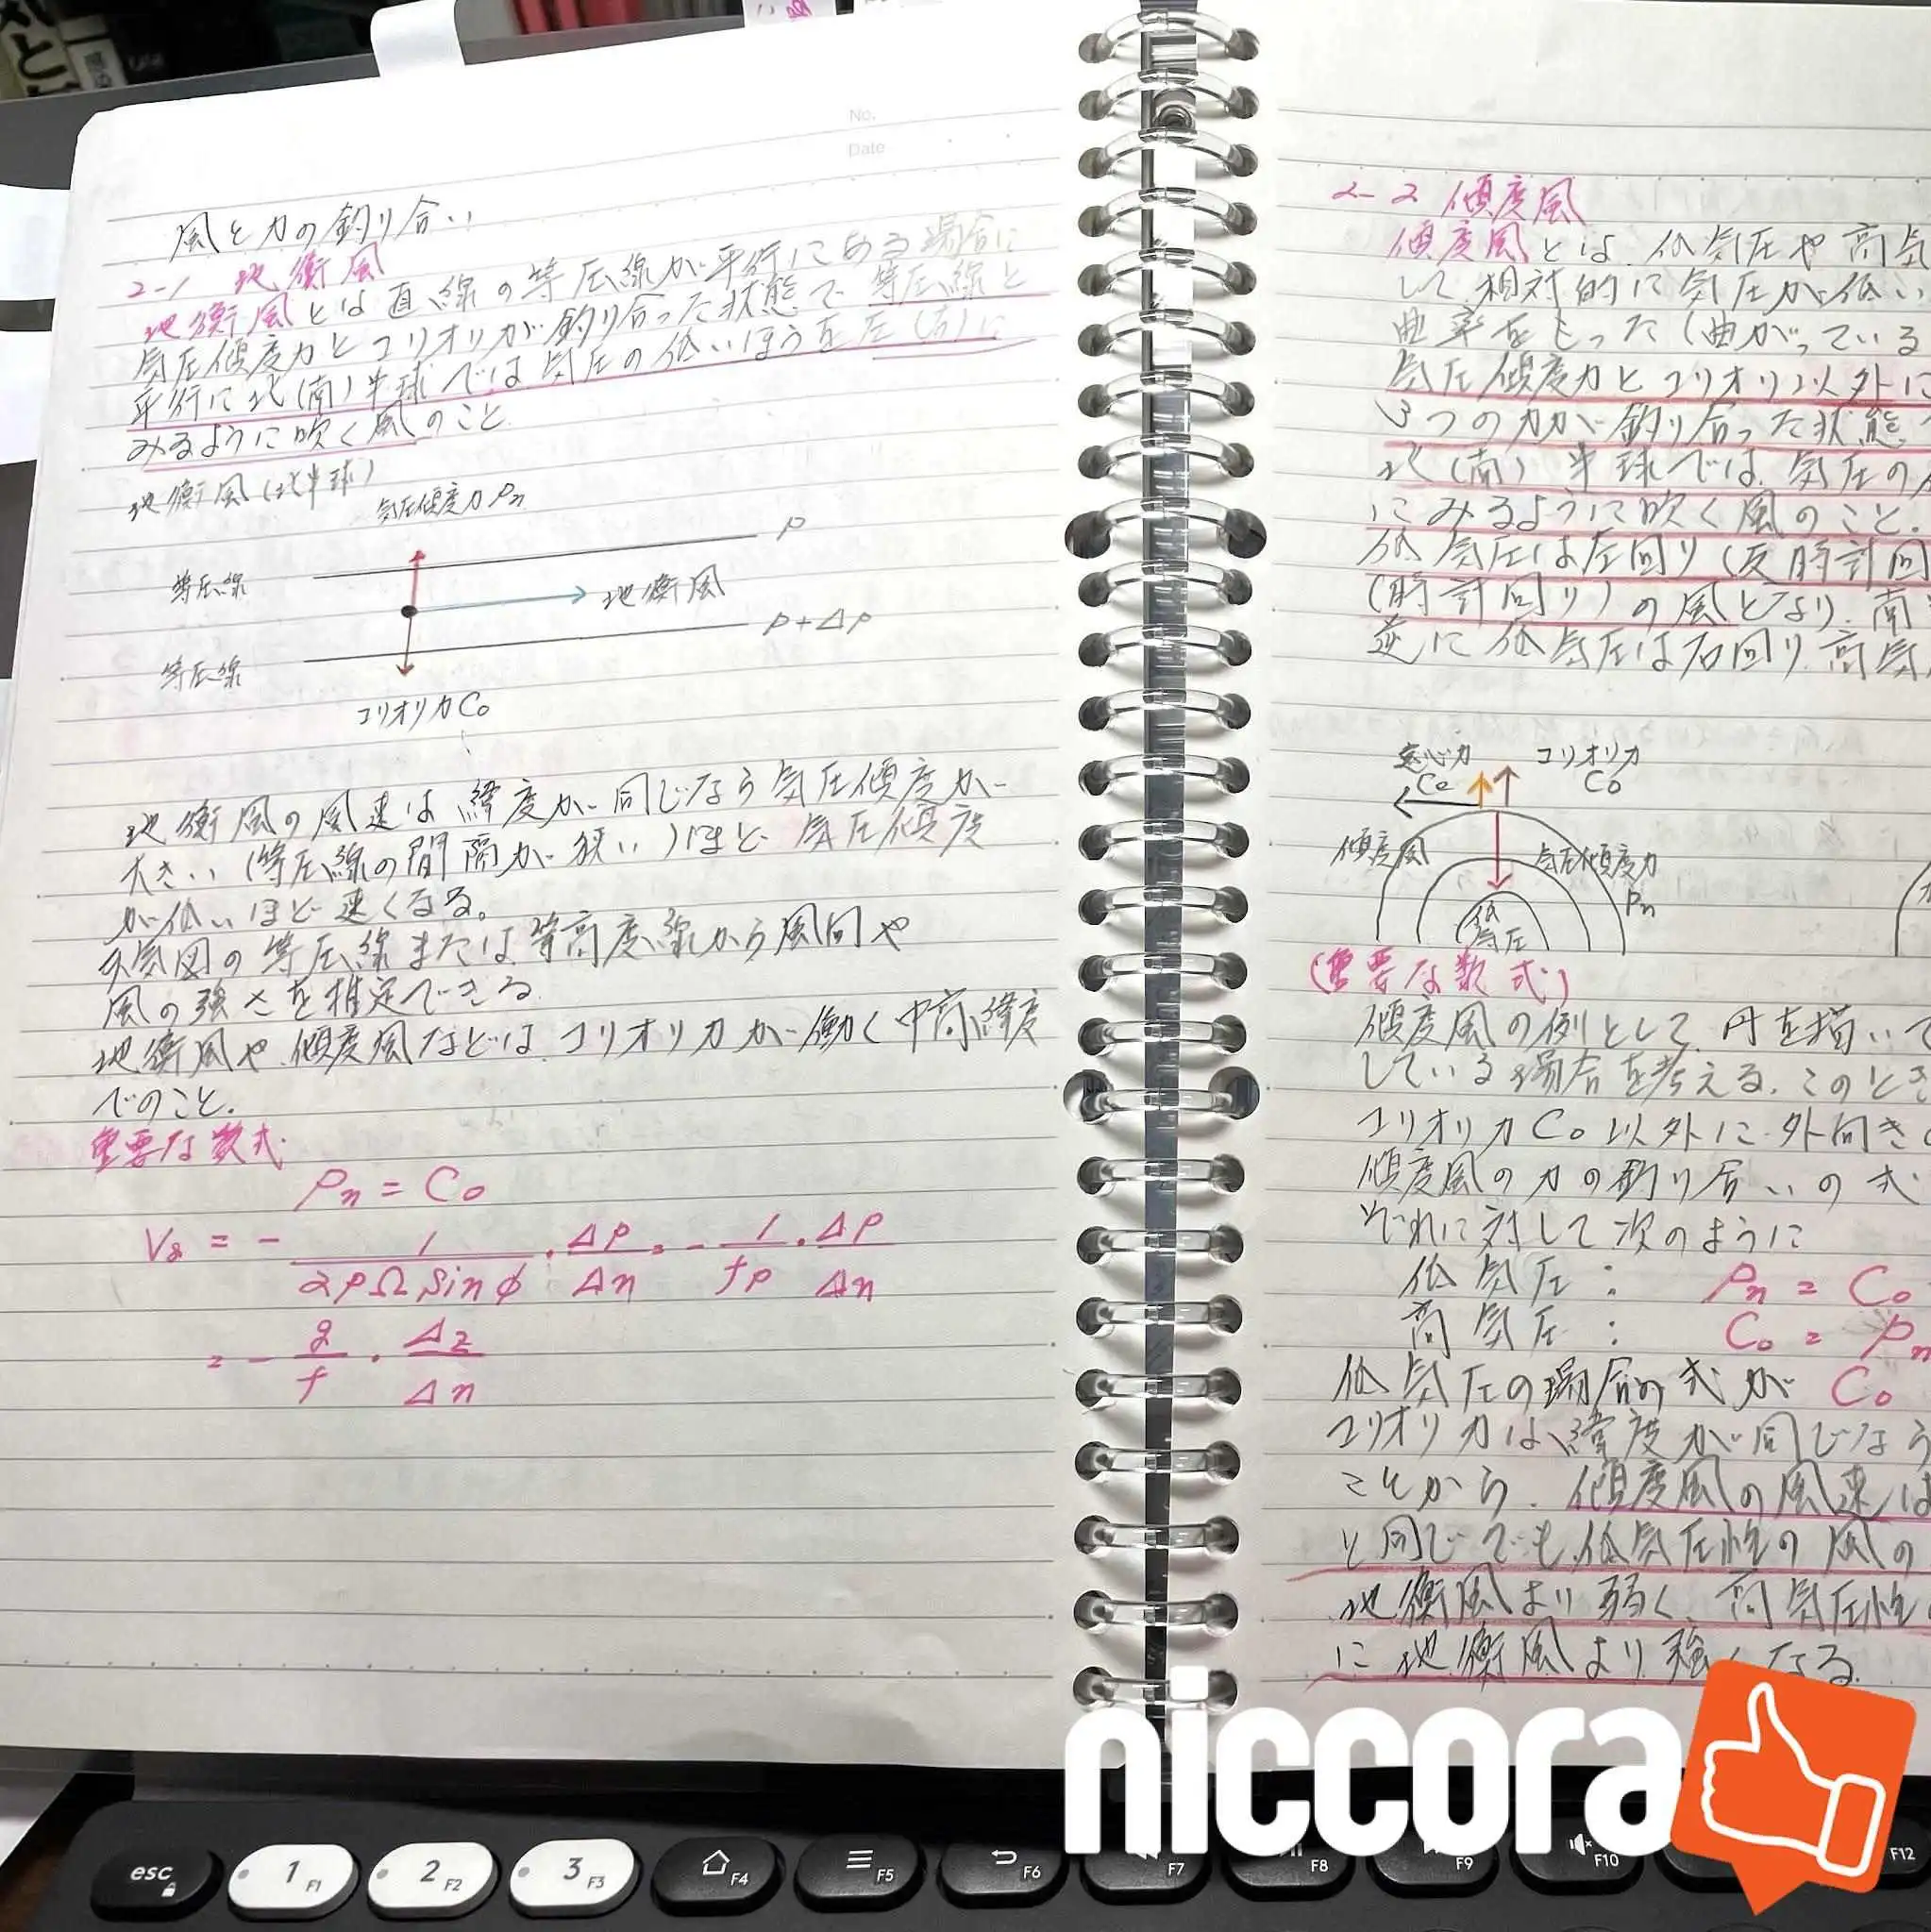 No.
Date
風と力の釣り合い
2-1 地衡風
地衡風とは直線の等圧線が平行にある場合に
気圧傾度力とコリオリが釣り合った状態で等圧線と
平行に北(南)半球では気圧の低いほうを左(右)に
みるように吹く風のこと
地衡風(北半球)
気圧傾度力 Pn
P
等圧線
地衡風
P+ΔP
等圧線
コリオリ力 Co
地衡風の風速は緯度が同じなら気圧傾度が
大きい(等圧線の間隔が狭い)ほど気圧傾度
が低いほど速くなる。
天気図の等圧線または等高度線から風向や
風の強さを推定できる
地衡風や傾度風などはコリオリ力が働く中高緯度
でのこと.
重要な数式
Pn = Co
Vg = - 1/2ρΩsinφ · ΔP/Δn = - 1/fρ · ΔP/Δn
= - g/f · Δz/Δn
2-2 傾度風
傾度風とは、低気圧や高気
して相対的に気圧が低い
曲率をもった(曲がっている
気圧傾度力とコリオリ以外に
3つの力が釣り合った状態
北(南)半球では気圧の
にみるように吹く風のこと.
低気圧は左回り(反時計回
(時計回り)の風となり、南
逆に低気圧は右回り、高気
遠心力 コリオリ力
Ce Co
傾度風 気圧傾度力
Pn
低
気圧
(重要な数式)
傾度風の例として、円を描いて
している場合を考える.このとき
コリオリ力Co以外に外向き
傾度風の力の釣り合いの式
ぞれに対して次のように
低気圧: Pn = Co
高気圧: Co = Pn
低気圧の場合の式が Co
コリオリ力は緯度が同じなら
ことから、傾度風の風速は
と同じでも低気圧性の風の
地衡風より弱く、高気圧性
に地衡風より強くなる.
niccora
esc
1 F1
2 F2
3 F3
F4
F5
F6
F7
F8
F9
F10
F12